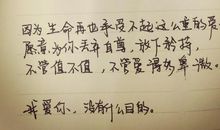 因为生命再也承受不起这么重的爱
愿意为你丢弃自尊，放下矜持，
不管值不值，不管爱得多卑微。
我爱你，没有什么目的。